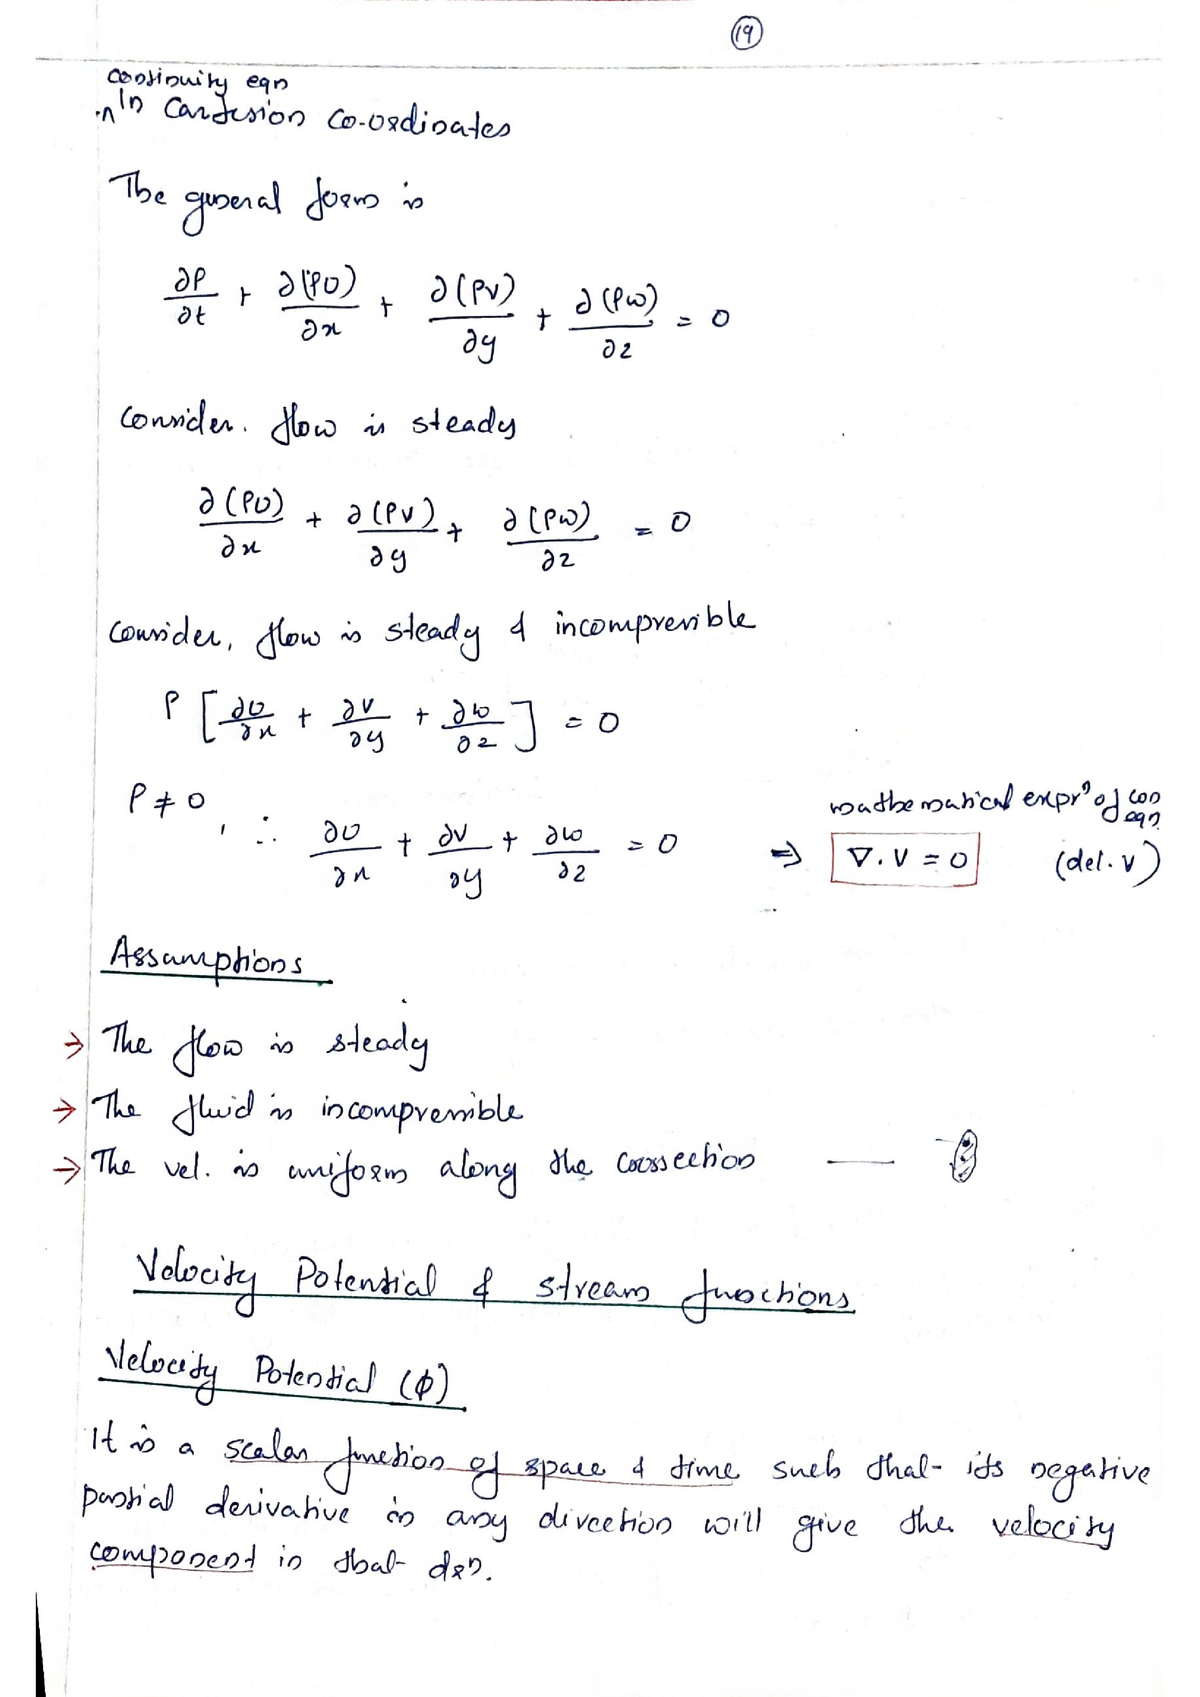 19
continuity eqn
.n In Cartesion co-ordinates
The general form is
∂ρ/∂t + ∂(ρu)/∂x + ∂(ρv)/∂y + ∂(ρw)/∂z = 0
Consider. flow is steady
∂(ρu)/∂x + ∂(ρv)/∂y + ∂(ρw)/∂z = 0
Consider, flow is steady & incompressible
ρ [∂u/∂x + ∂v/∂y + ∂w/∂z] = 0
ρ ≠ 0, ∴ ∂u/∂x + ∂v/∂y + ∂w/∂z = 0
mathematical exprⁿ of con eqn.
⇒ ∇.V = 0 (del. v)
Assumptions
→ The flow is steady
→ The fluid is incompressible
→ The vel. is uniform along the crossection
Velocity Potential & stream functions
Velocity Potential (ϕ)
It is a scalar function of space & time such that its negative
partial derivative in any direction will give the velocity
component in that drn.